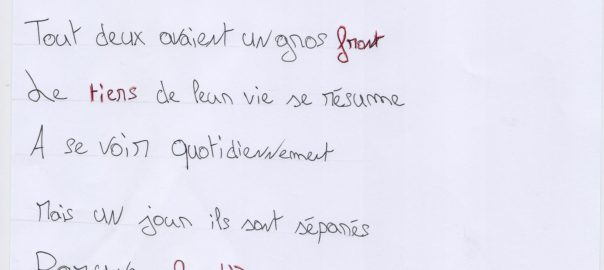 Tout deux avaient un gros front
Le tiers de leur vie se résume
A se voir quotidiennement
Mais un jour ils sont séparés